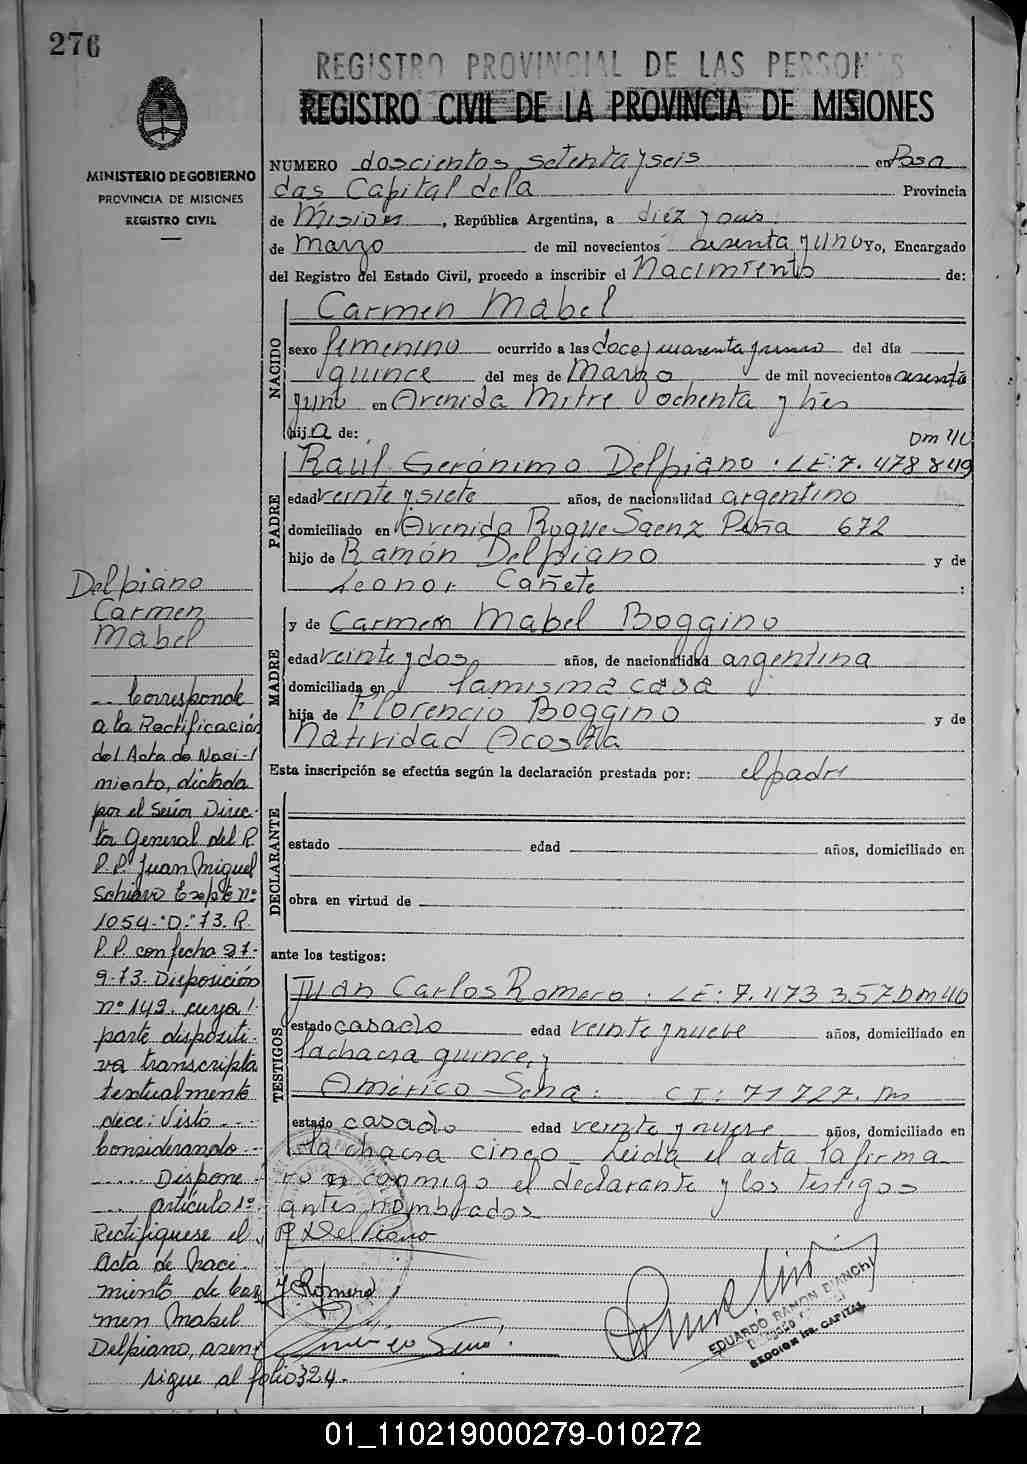 276
REGISTRO PROVINCIAL DE LAS PERSONAS
REGISTRO CIVIL DE LA PROVINCIA DE MISIONES
MINISTERIO DE GOBIERNO
PROVINCIA DE MISIONES
REGISTRO CIVIL
NUMERO doscientos setenta y seis en Posa
das Capital de la Provincia
de Misiones, República Argentina, a diéz y seis
de marzo de mil novecientos sesenta y uno Yo, Encargado
del Registro del Estado Civil, procedo a inscribir el Nacimiento de:
NACIDO
Carmen Mabel
sexo femenino ocurrido a las doce y cuarenta y cinco del día
quince del mes de Marzo de mil novecientos sesenta
y uno en Avenida Mitre ochenta y tres
hija de:
Dm 40
PADRE
Raúl Gerónimo Delpiano. LE: 7.478849
edad veinte y siete años, de nacionalidad argentino
domiciliado en Avenida Roque Saenz Peña 672
hijo de Ramón Delpiano y de
Leonor Cañete :
MADRE
y de Carmen Mabel Boggino
edad veinte y dos años, de nacionalidad argentina
domiciliada en la misma casa
hija de Florencio Boggino y de
Natividad Acosta
Esta inscripción se efectúa según la declaración prestada por: el padre
DECLARANTE
estado edad años, domiciliado en
obra en virtud de
ante los testigos:
TESTIGOS
Juan Carlos Romero. LE: 7.473 357 Dm 40
estado casado edad veinte y nueve años, domiciliado en
la chacra quince, y
Américo Sena: CI: 71727.
estado casado edad veinte y nueve años, domiciliado en
la chacra cinco. Leida el acta la firma
ron conmigo el declarante y los testigos
antes nombrados
R Delpiano
J Romero
EDUARDO RAMON BIANCHI
SECCION 1ra. CAPITAL
Delpiano
Carmen
Mabel
Corresponde
a la Rectificación
del Acta de Naci-
miento, dictada
por el Señor Direc-
tor General del R.
P. P. Juan Miguel
Schiavo Expte Nº
1054-"D"-73. R.
P. P. con fecha 27-
9-73. Disposición
nº 142. cuya
parte dispositi-
va transcripta
textualmente
dice: Visto...
Considerando...
..... Dispone
... artículo 1º:
Rectifiquese el
Acta de Naci-
miento de Car
men Mabel
Delpiano, asen
sigue al folio 324.
01_110219000279-010272